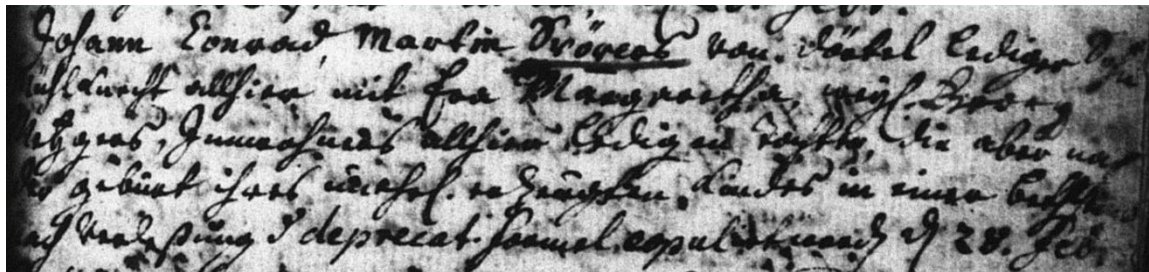 Johann Conrad, Martin Störers von Dörtel lediger Sohn
Mühlknecht allhier mit Eva Margretha, weyl. Georg
Metzgers, Innwohners allhier ledigen Tochter, die aber nach
der geburt ihres unehel. erzeugten Kindes in einer Bethst
nach Verlesung d deprecat. formul. copulirt word. d. 28. Febr.